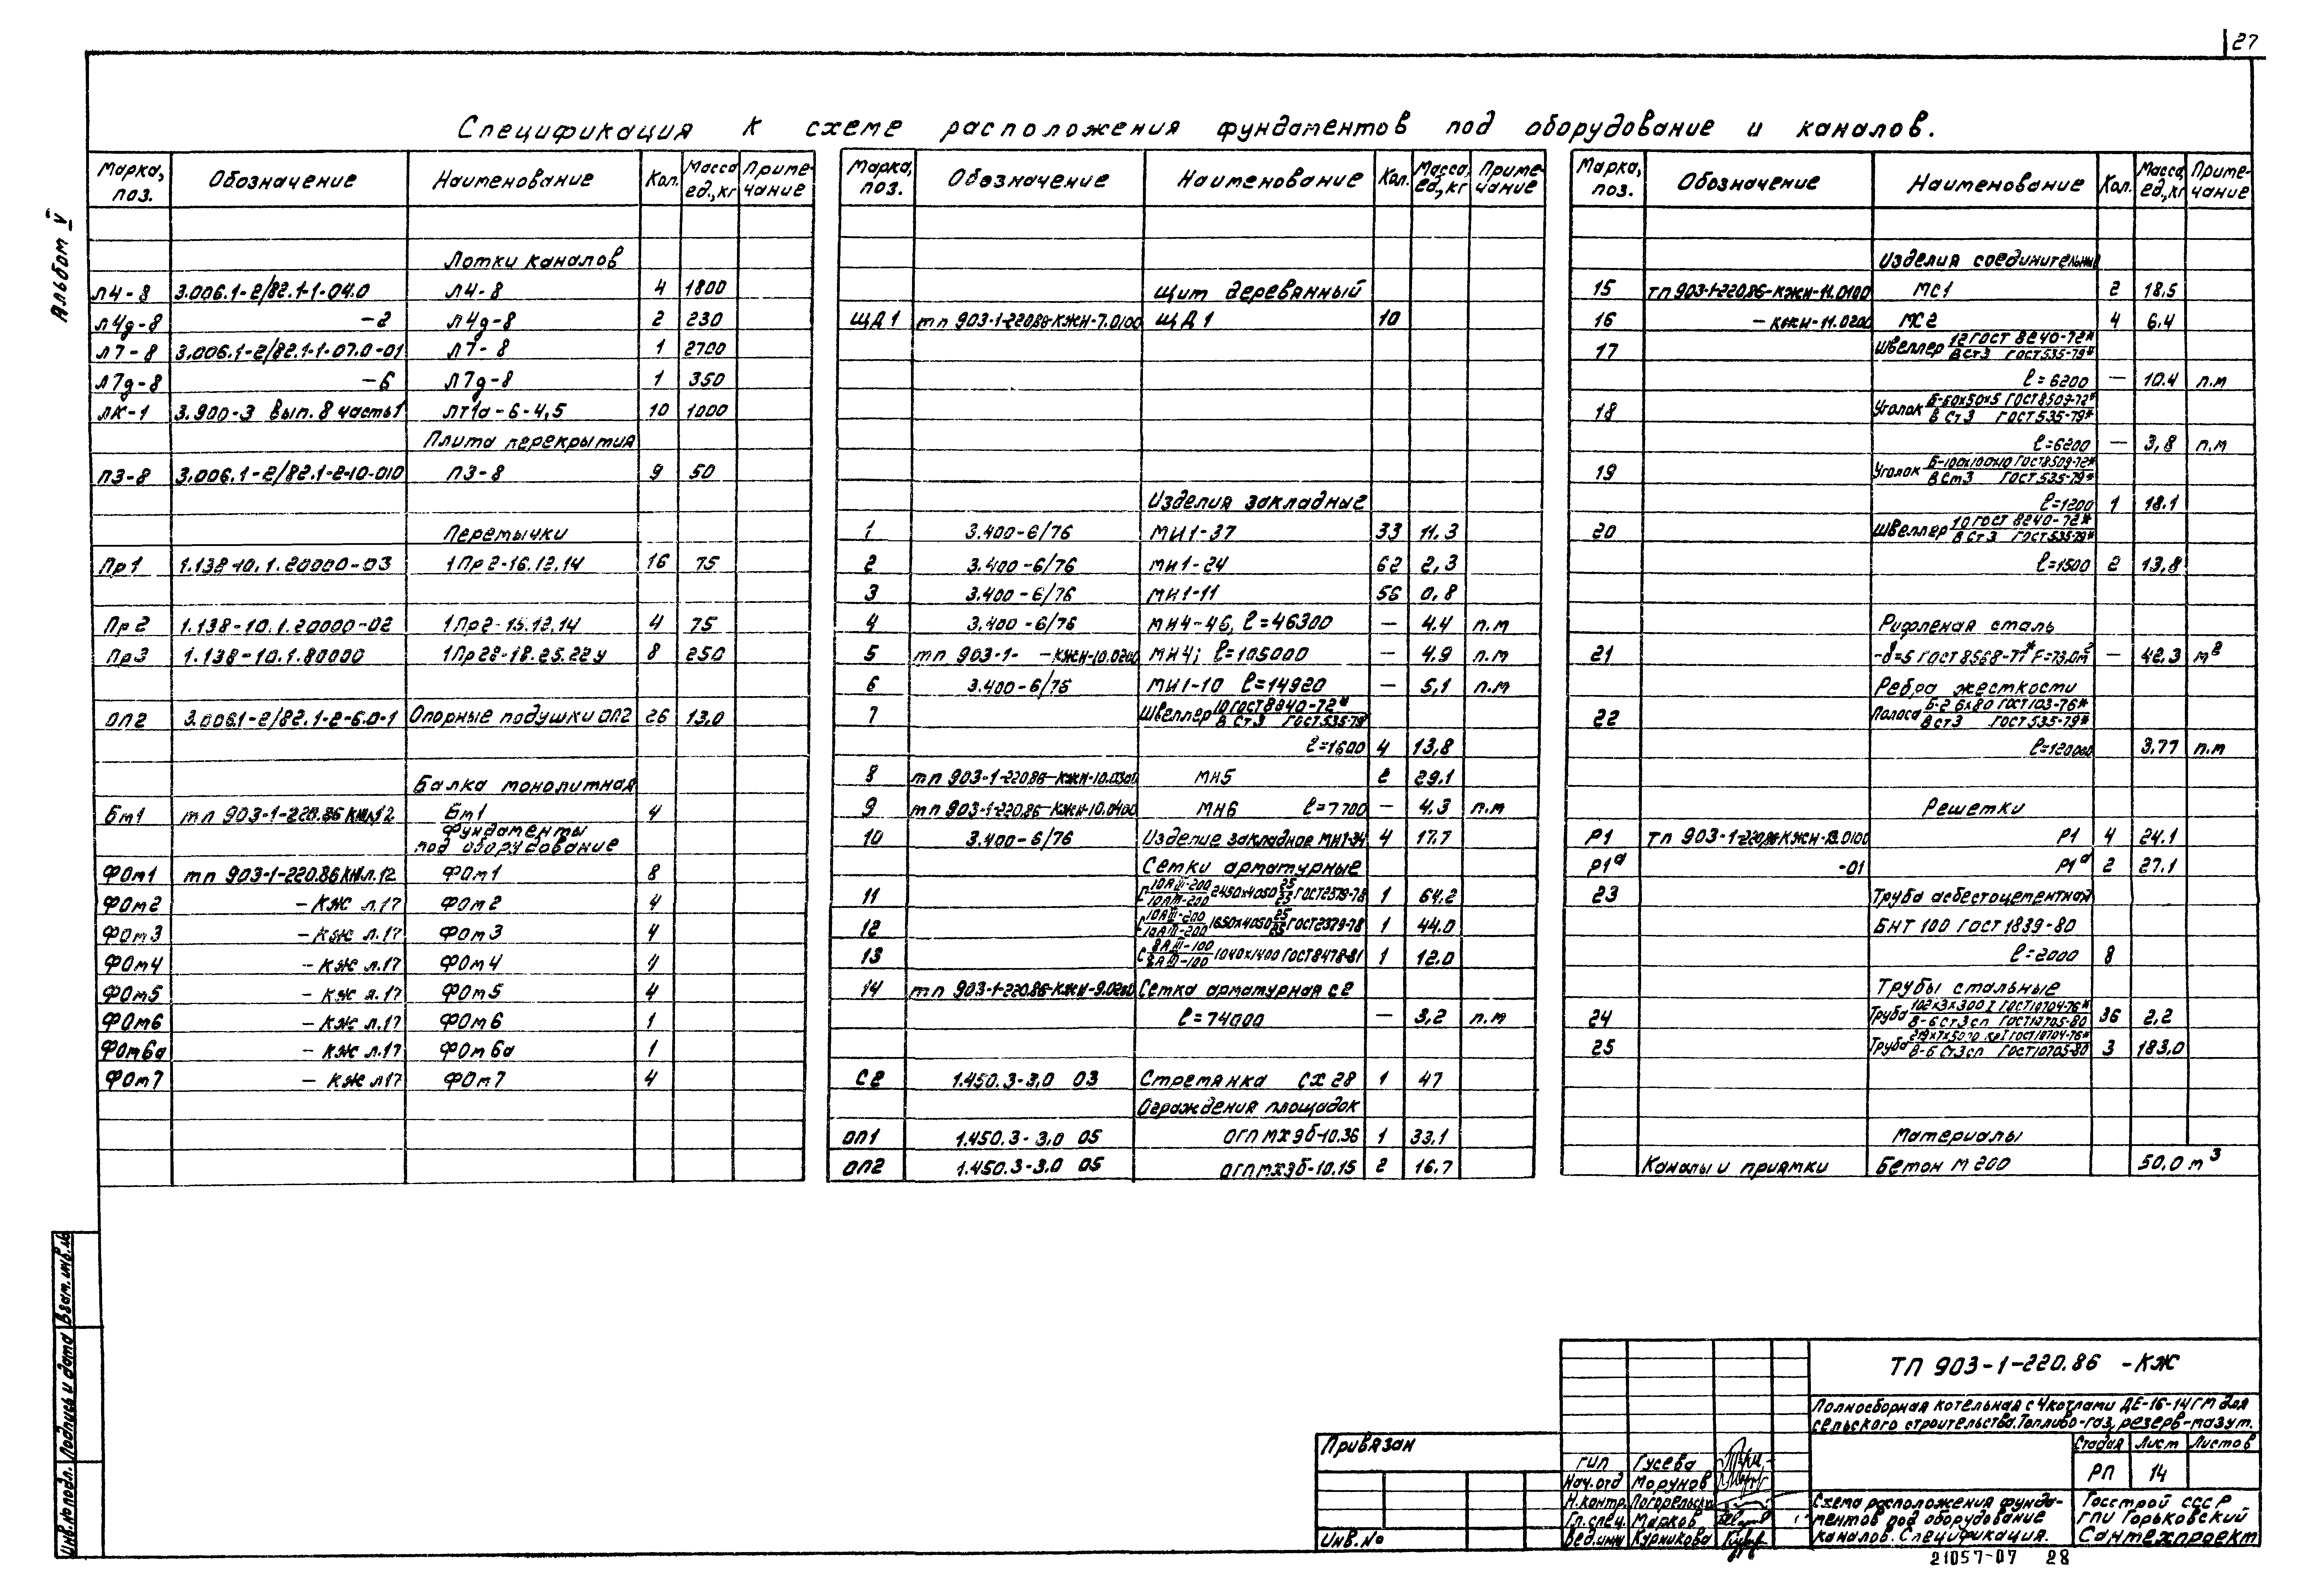 27
Альбом V
Спецификация к схеме расположения фундаментов под оборудование и каналов.
Марка, поз. Обозначение Наименование Кол. Масса ед., кг Примечание
Лотки каналов
Л4-8 3.006.1-2/82.1-1-04.0 Л4-8 4 1800
Л4д-8 -2 Л4д-8 2 230
Л7-8 3.006.1-2/82.1-1-07.0-01 Л7-8 1 2700
Л7д-8 -6 Л7д-8 1 350
ЛК-1 3.900-3 Вып. 8 часть 1 ЛТ1а-6-4,5 10 1000
Плита перекрытия
П3-8 3.006.1-2/82.1-2-10-010 П3-8 9 50
Перемычки
Пр1 1.138-10.1.20000-03 1Пр2-16.12.14 16 75
Пр2 1.138-10.1.20000-02 1Пр2-15.12.14 4 75
Пр3 1.138-10.1.80000 1Пр28-18.25.22у 8 250
ОП2 3.006.1-2/82.1-2-6.0-1 Опорные подушки ОП2 26 13,0
Балка монолитная
Бм1 тп 903-1-220.86 КЖл.12 Бм1 4
Фундаменты под оборудование
ФОм1 тп 903-1-220.86 КЖл.12 ФОм1 8
ФОм2 -КЖ л.17 ФОм2 4
ФОм3 -КЖ л.17 ФОм3 4
ФОм4 -КЖ л.17 ФОм4 4
ФОм5 -КЖ л.17 ФОм5 4
ФОм6 -КЖ л.17 ФОм6 1
ФОм6а -КЖ л.17 ФОм6а 1
ФОм7 -КЖ л17 ФОм7 4
Марка, поз. Обозначение Наименование Кол. Масса ед., кг Примечание
Щит деревянный
ЩД1 тп 903-1-220.86-КЖИ-7.0100 ЩД1 10
Изделия закладные
1 3.400-6/76 МН1-37 33 11.3
2 3.400-6/76 МН1-24 62 2,3
3 3.400-6/76 МН1-11 56 0,8
4 3.400-6/76 МН4-46, ℓ=46300 — 4.4 п.м
5 тп 903-1- -КЖИ-10.0200 МН4; ℓ=105000 — 4.9 п.м
6 3.400-6/75 МН1-10 ℓ=14920 — 5,1 п.м
7 Швеллер 10 ГОСТ 8240-72* / В Ст3 ГОСТ 535-79
ℓ=1600 4 13,8
8 тп 903-1-220.86-КЖИ-10.0300 МН5 2 29.1
9 тп 903-1-220.86-КЖИ-10.0400 МН6 ℓ=7700 — 4.3 п.м
10 3.400-6/76 Изделие закладное МН1-34 4 17.7
Сетки арматурные
11 С 10АIII-200 / 10АIII-200 2450х4050 25/25 ГОСТ 2379-78 1 64.2
12 С 10АIII-200 / 10АIII-200 1650х4050 25/25 ГОСТ 2379-78 1 44.0
13 С 8АIII-100 / 8АIII-100 1040х1400 ГОСТ 8478-81 1 12.0
14 тп 903-1-220.86-КЖИ-9.0200 Сетка арматурная С2
ℓ=74000 — 3,2 п.м
С2 1.450.3-3,0 03 Стремянка СХ 28 1 47
Ограждения площадок
ОП1 1.450.3-3,0 05 ОГПМХЭб-10.36 1 33.1
ОП2 1.450.3-3.0 05 ОГПМХЭб-10.15 2 16.7
Марка, поз. Обозначение Наименование Кол. Масса ед., кг Примечание
Изделия соединительные
15 ТП 903-1-220.86-КЖИ-11.0100 МС1 2 18.5
16 -КЖИ-11.0200 МС2 4 6.4
17 Швеллер 12 ГОСТ 8240-72* / В Ст3 ГОСТ 535-79*
ℓ=6200 — 10.4 п.м
18 Уголок Б-50х50х5 ГОСТ 8509-72* / В Ст3 ГОСТ 535-79*
ℓ=6200 — 3,8 п.м
19 Уголок Б-100х100х10 ГОСТ 8509-72* / В Ст3 ГОСТ 535-79*
ℓ=1200 1 18.1
20 Швеллер 10 ГОСТ 8240-72* / В Ст3 ГОСТ 535-79*
ℓ=1500 2 13,8
Рифленая сталь
21 -δ=5 ГОСТ 8568-77* F=73.0м² — 42.3 м²
Ребра жесткости
22 Полоса Б-2 6х80 ГОСТ 103-76* / В Ст3 ГОСТ 535-79*
ℓ=120000 3,77 п.м
Решетки
Р1 ТП 903-1-220.86-КЖИ-13.0100 Р1 4 24.1
Р1а -01 Р1а 2 27.1
23 Труба асбестоцементная
БНТ 100 ГОСТ 1839-80
ℓ=2000 8
Трубы стальные
24 Труба 102х3х300 I ГОСТ 10704-76* / В-6 Ст3сп ГОСТ 10705-80 36 2.2
25 Труба 219х7х5000 кр I ГОСТ 10704-76* / В-Б Ст3сп ГОСТ 10705-80 3 183,0
Материалы
Каналы и приямки Бетон М 200 50,0 м³
Инв.№ подл. Подпись и дата Взам. инв.№
Привязан
Инв.№
ТП 903-1-220.86 -КЖ
Полносборная котельная с 4 котлами ДЕ-16-14ГМ для
сельского строительства. Топливо-газ, резерв-мазут.
Стадия Лист Листов
РП 14
ГИП Гусева
Нач.отд Морунов
Н.контр. Погорельски
Гл.спец. Марков
Вед.инж Курникова
Схема расположения фунда-
ментов под оборудование
каналов. Спецификация.
Госстрой СССР
ГПИ Горьковский
Сантехпроект
21057-07 28